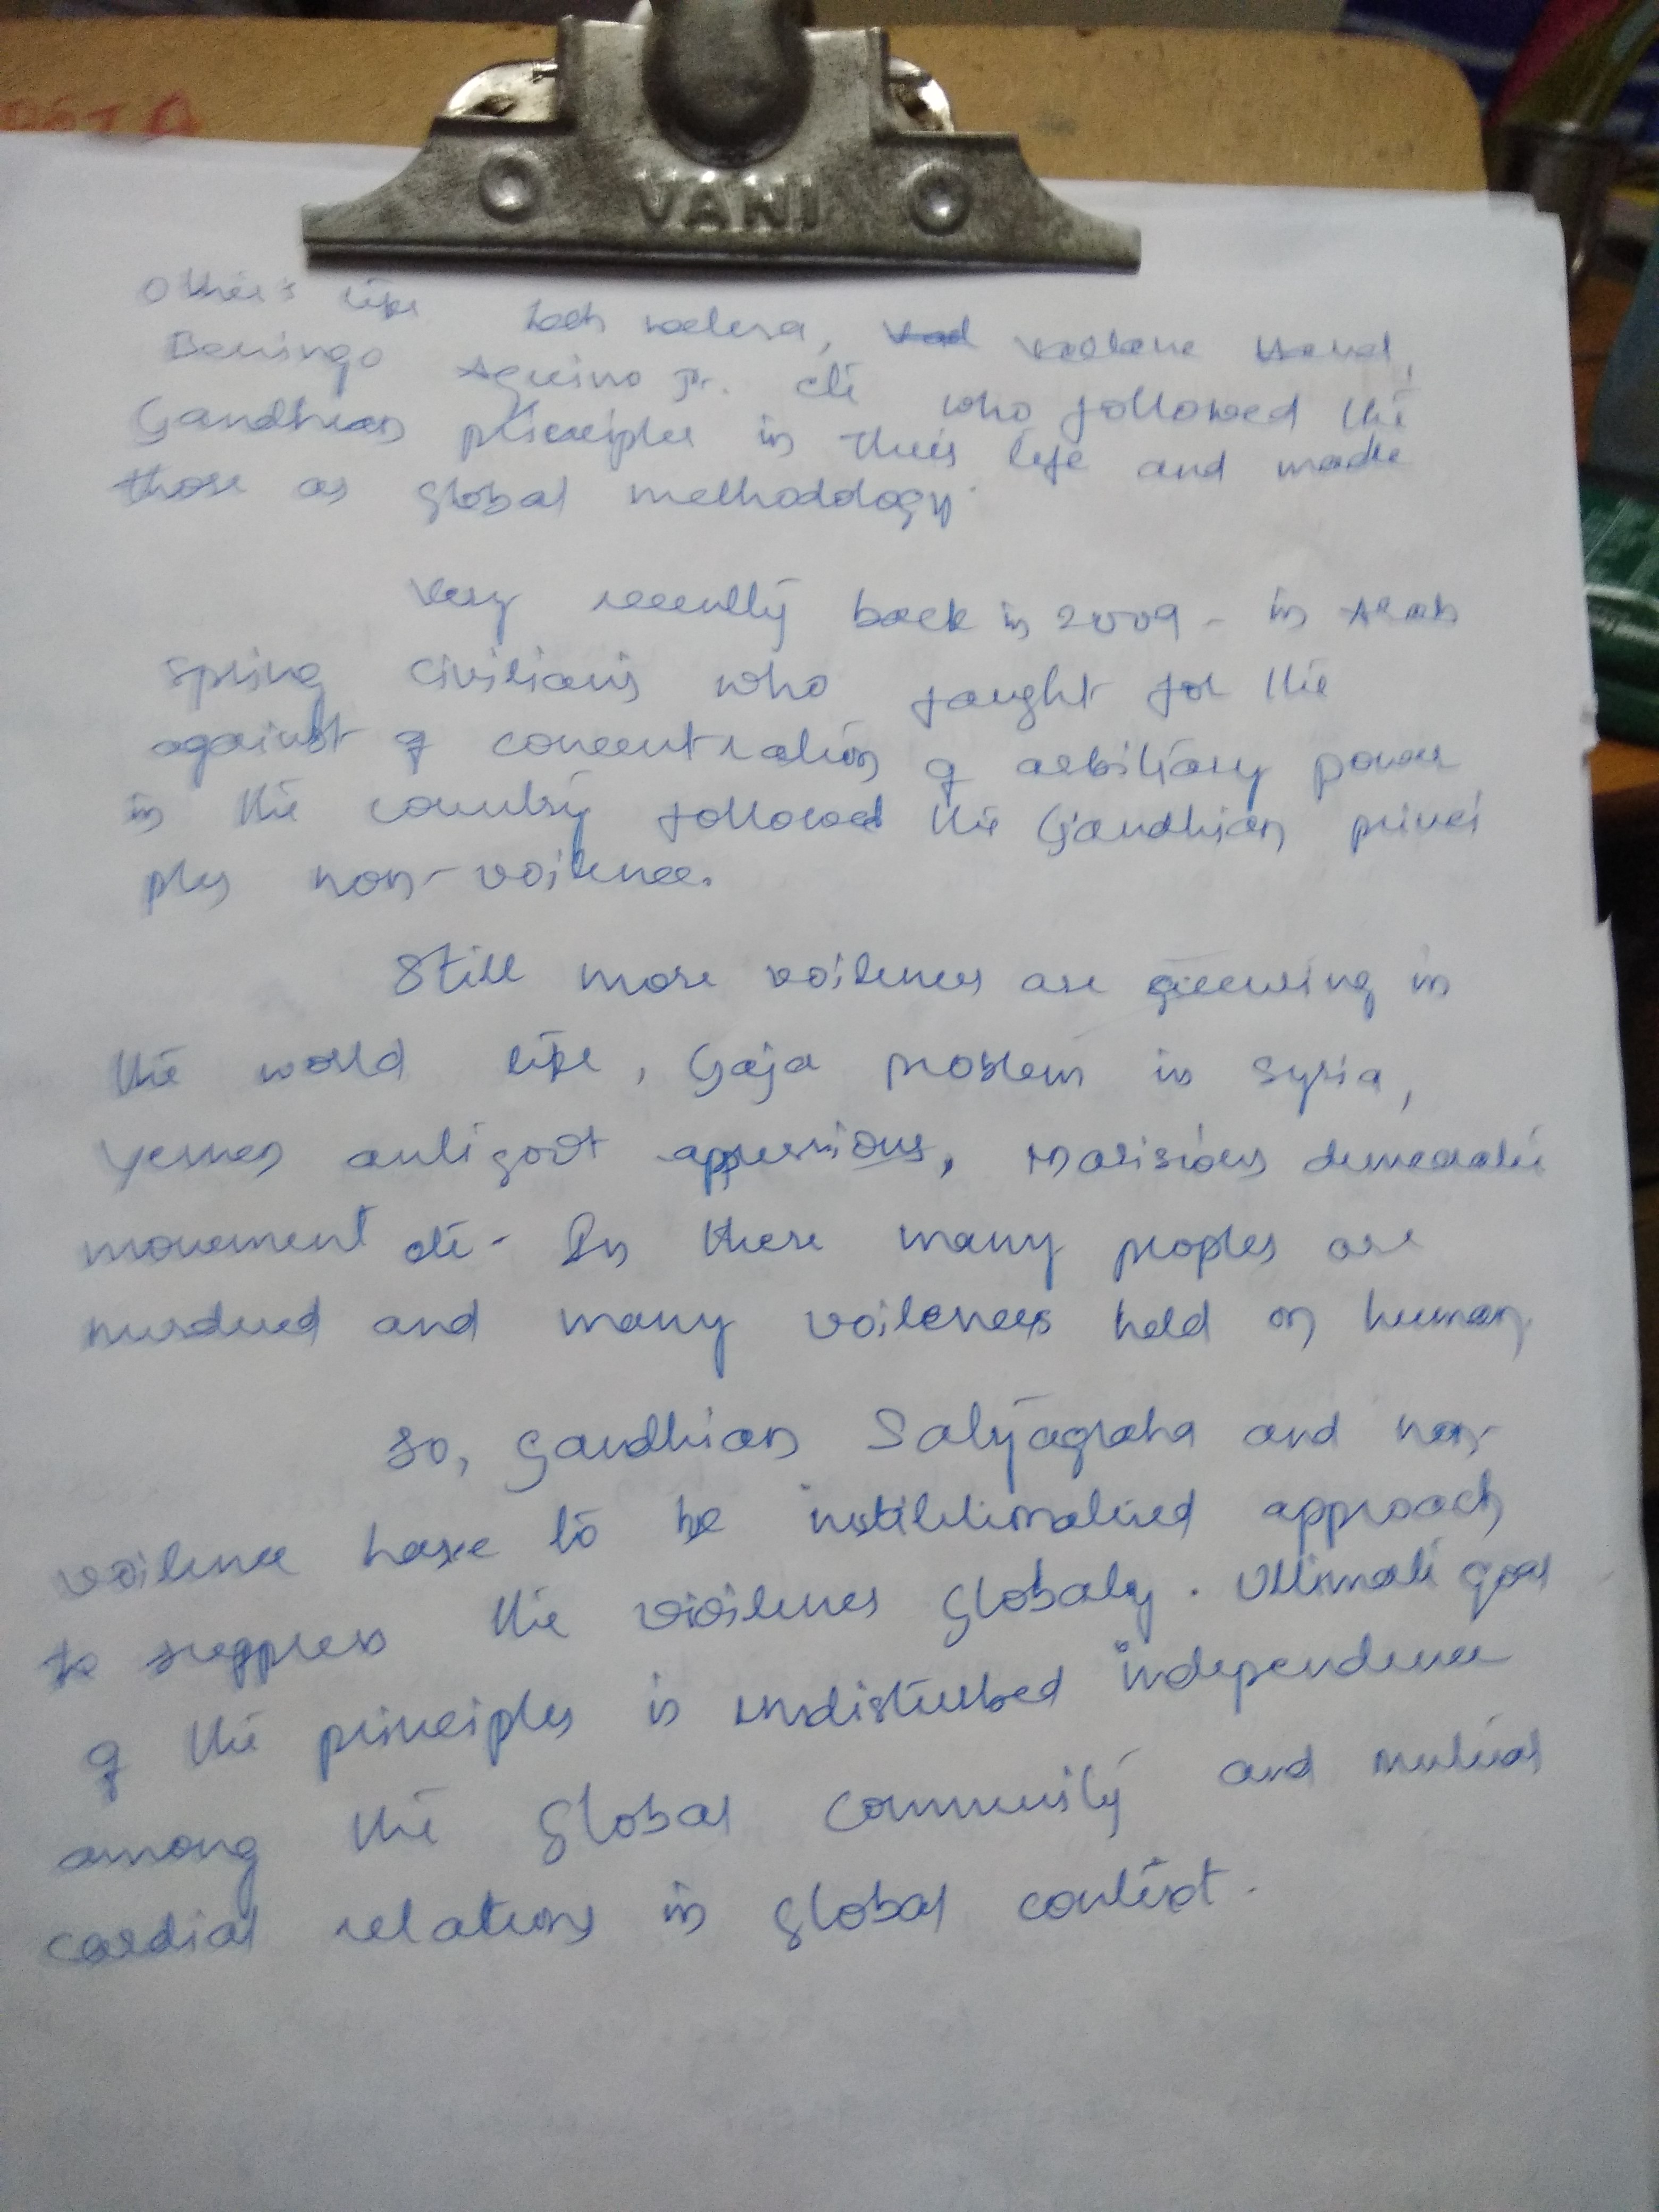 VANI
Other's like Lech walesa, Vaclav Havel,
Beningo Aquino Jr. etc who followed the
Gandhian principles in their life and made
those as global methodology.
Very recently back in 2009 - in Arab
spring civilians who faught for the
against of concentration of arbitiary power
in the country followed the Gandhian princi
ples non-voilence.
Still more voilences are occuring in
the world like, Gaja problem in syria,
Yemen antigovt , democratic
movement etc. In these many peoples are
murdered and many voilences held on human
So, Gandhian Satyagraha and non-
voilence have to be approach
to suppress the voilences globaly. Ultimate goal
of the principles is undisturbed independence
among the global community and mutual
cordial relations in global context.